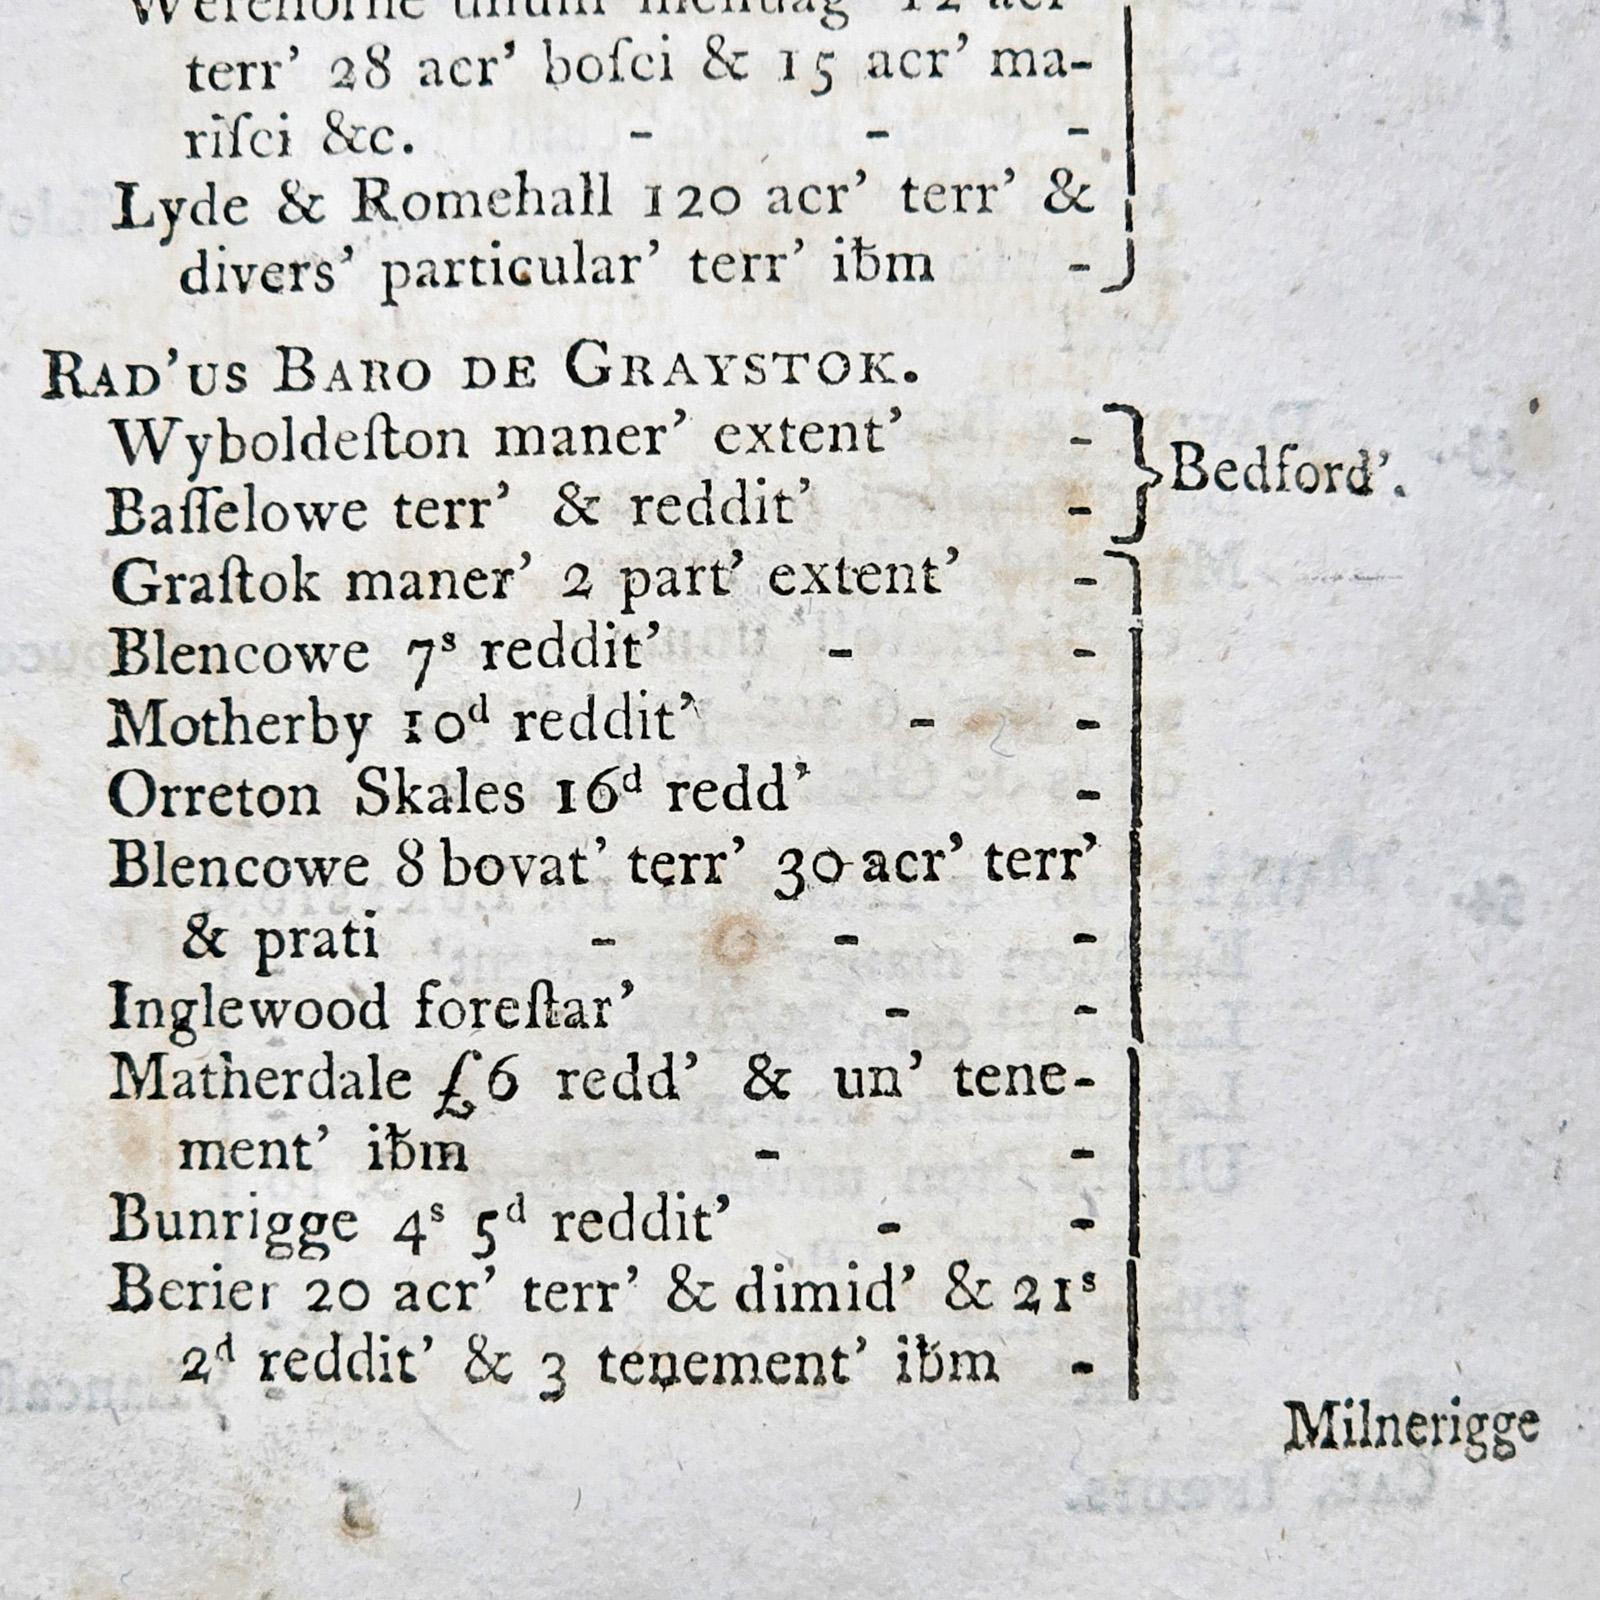 Werehorne unum mesuag' 12 acr'
terr' 28 acr' boſci & 15 acr' ma-
riſci &c. - - -
Lyde & Romehall 120 acr' terr' &
divers' particular' terr' ib̄m -
RAD'US BARO DE GRAYSTOK.
Wyboldeſton maner' extent' -
Bedford'.
Baſſelowe terr' & reddit' -
Graſtok maner' 2 part' extent' -
Blencowe 7s reddit' - -
Motherby 10d reddit' - -
Orreton Skales 16d redd' -
Blencowe 8 bovat' terr' 30 acr' terr'
& prati - - -
Inglewood foreſtar' - -
Matherdale £6 redd' & un' tene-
ment' ib̄m - -
Bunrigge 4s 5d reddit' - -
Berier 20 acr' terr' & dimid' & 21s
2d reddit' & 3 tenement' ib̄m -
Milnerigge